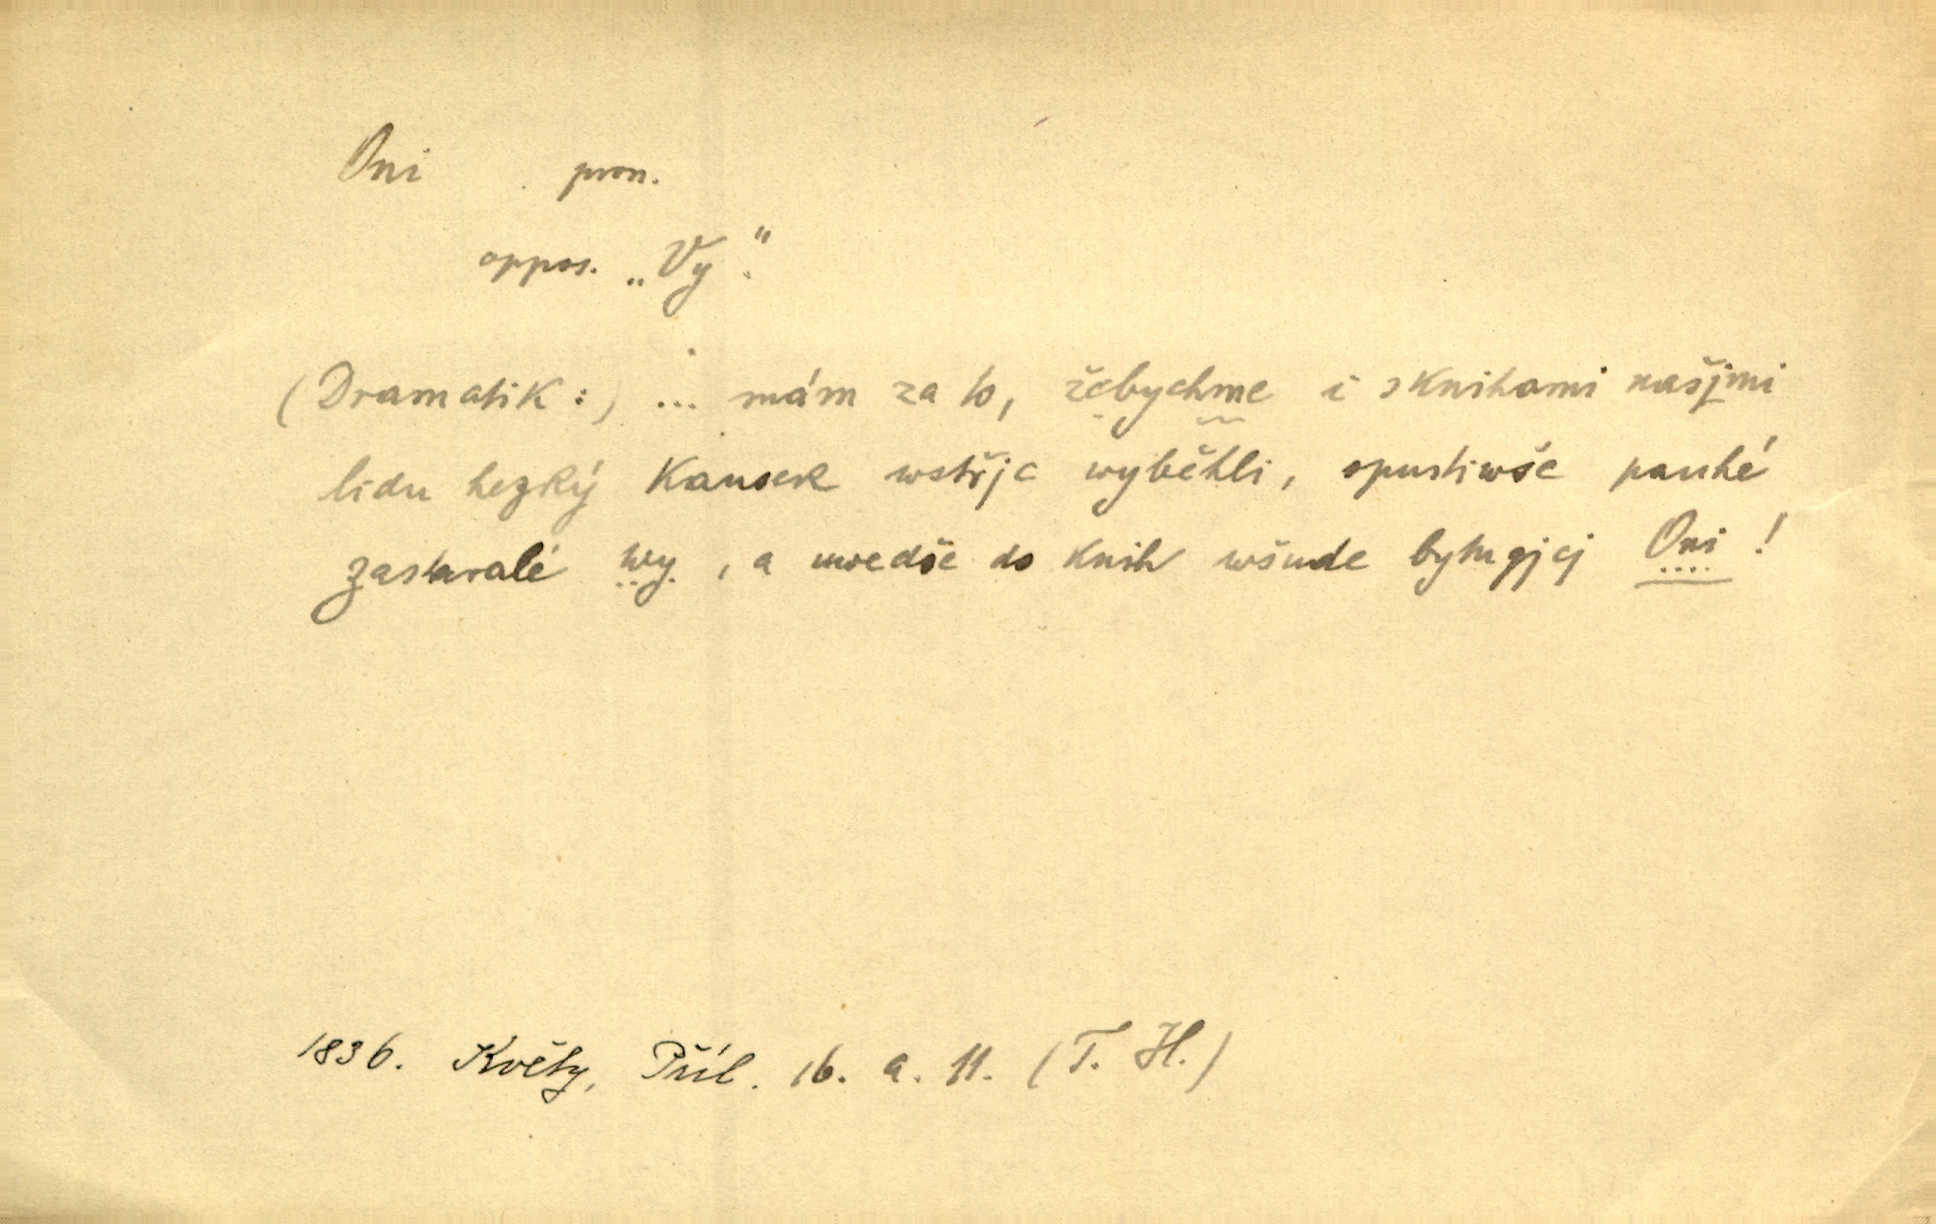 Oni pron.
oppos. „Vy“.
(Dramatik:) ... mám za to, žebychme i s knihami našjmi
lidu hezký kausek wstřjc wyběhli, opustiwše pauhé
zastaralé wy, a uwedše do knih wšude bytugjcj Oni!
1836. Květy, Příl. 16. a. 11. (T. H.)